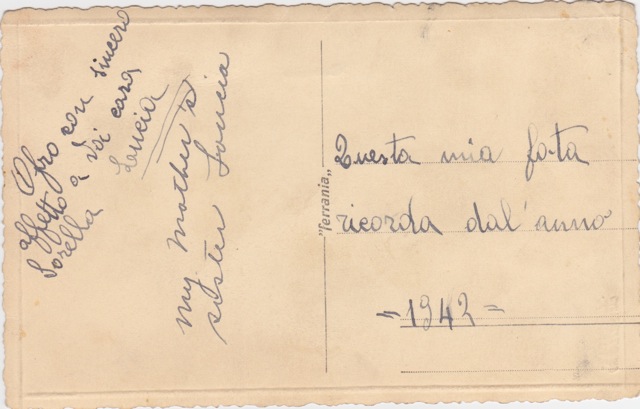 Offro con sincero
affetto a Voi cara
Sorella Lucia
my mother's
sister Loucia
"Ferrania"
Questa mia fota
ricorda dal'anno
= 1942 =